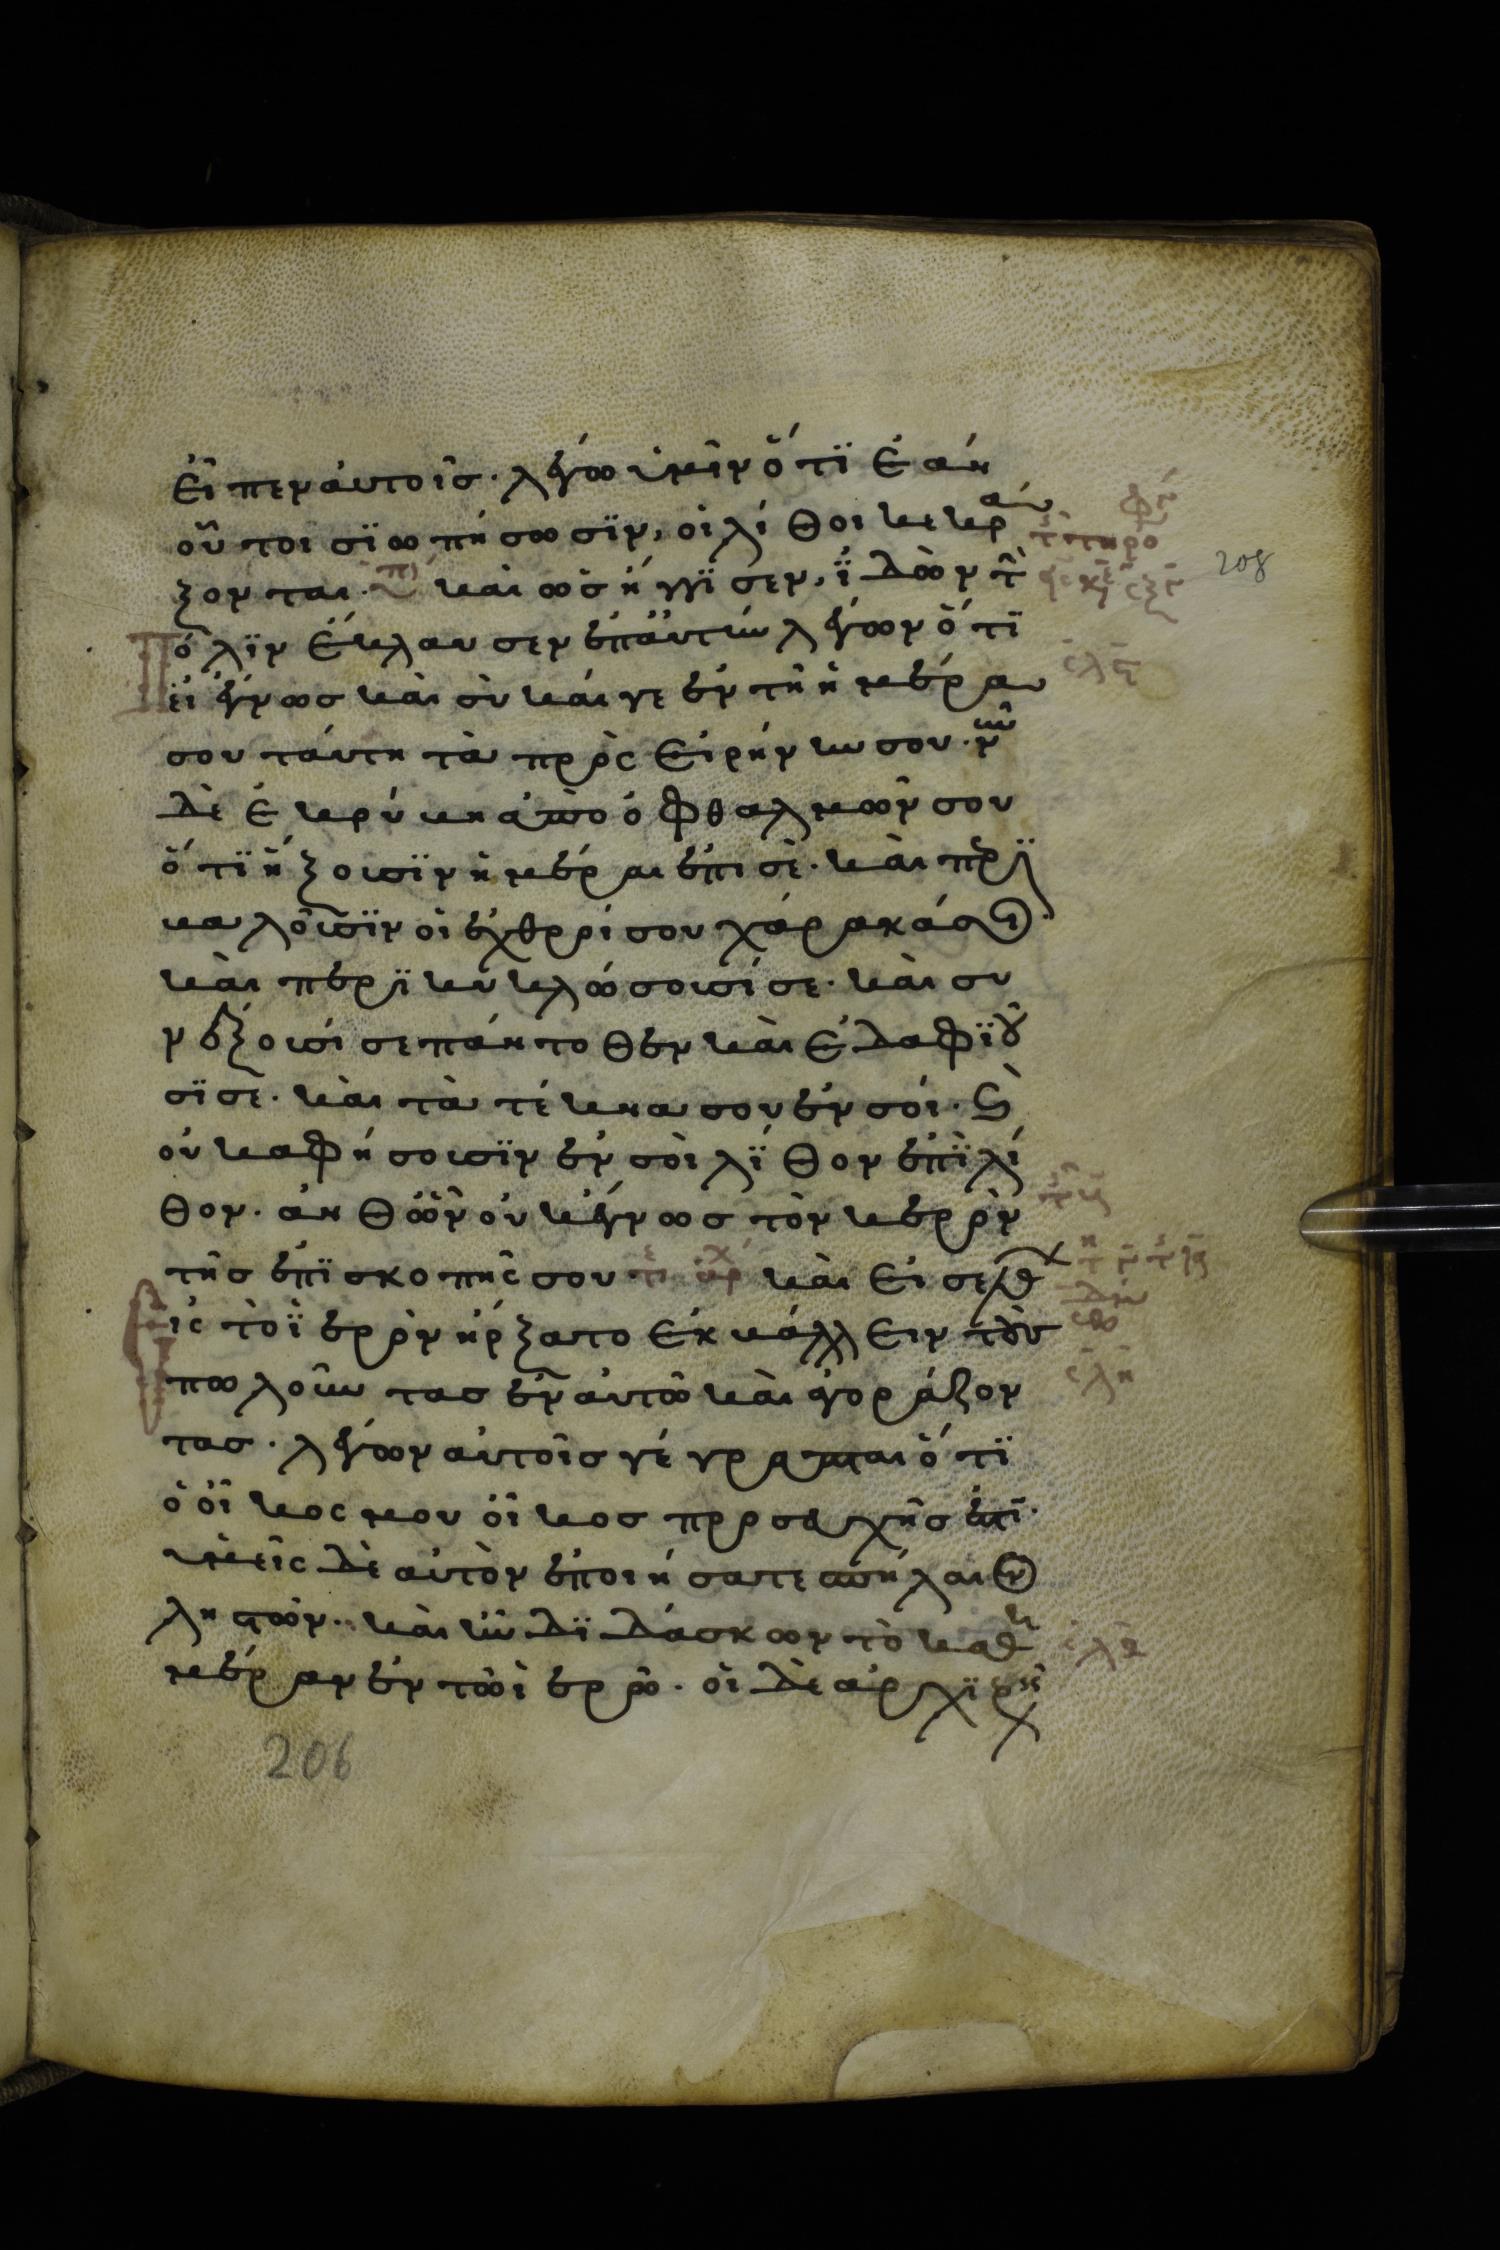 εἶπεν αὐτοῖσ· λέγω ὑμῖν ὅτϊ ἐὰν
οὗτοι σϊωπήσωσϊν, οἱ λίθοι κεκρά
ξονται· καὶ ὡσ ἤγγϊσεν, ἴδὼν τὴ
πόλϊν ἔκλαυσεν ἐπ' αὐτὴν λέγων ὅτϊ
εἰ ἔγνωσ καὶ σὺ καί γε ἐν τῆ ἡμέρα
σου ταύτη τὰ πρὸς εἰρήνην σου· νῦν
δὲ ἐκρύβη ἀπὸ ὀφθαλμῶν σου
ὅτϊ ἥξουσϊν ἡμέραι ἐπὶ σὲ· καὶ περϊ
βαλοῦσϊν οἱ ἐχθροί σου χάρακά σοι·
καὶ περϊκυκλώσουσί σε· καὶ συ
νέξουσί σε πάντοθεν καὶ ἐδαφϊοῦ
σϊ σε· καὶ τὰ τέκνα σου ἐν σοί· καὶ
οὐκ ἀφήσουσϊν ἐν σοὶ λϊθον ἐπὶ λί
θον· ἀνθ' ὧν οὐκ ἔγνωσ τὸν καιρὸν
τῆσ ἐπϊσκοπῆς σου καὶ εἰσελθὼν
εἰς τὸ ἱερὸν ἤρξατο ἐκβάλλειν τοὺσ
πωλοῦντασ ἐν αὐτῶ καὶ ἀγοράζον
τασ· λέγων αὐτοῖσ γέγραπται ὅτϊ
ὁ οἶκος μου οἶκοσ προσευχῆσ ἐστῒ·
ὑμεῖς δὲ αὐτὸν ἐποιήσατε σπήλαιον
ληστῶν· καὶ ἦν δϊδάσκων τὸ καθ' ἡ
μέραν ἐν τῶ ἱερῶ· οἱ δὲ ἀρχϊερεῖς
208
206